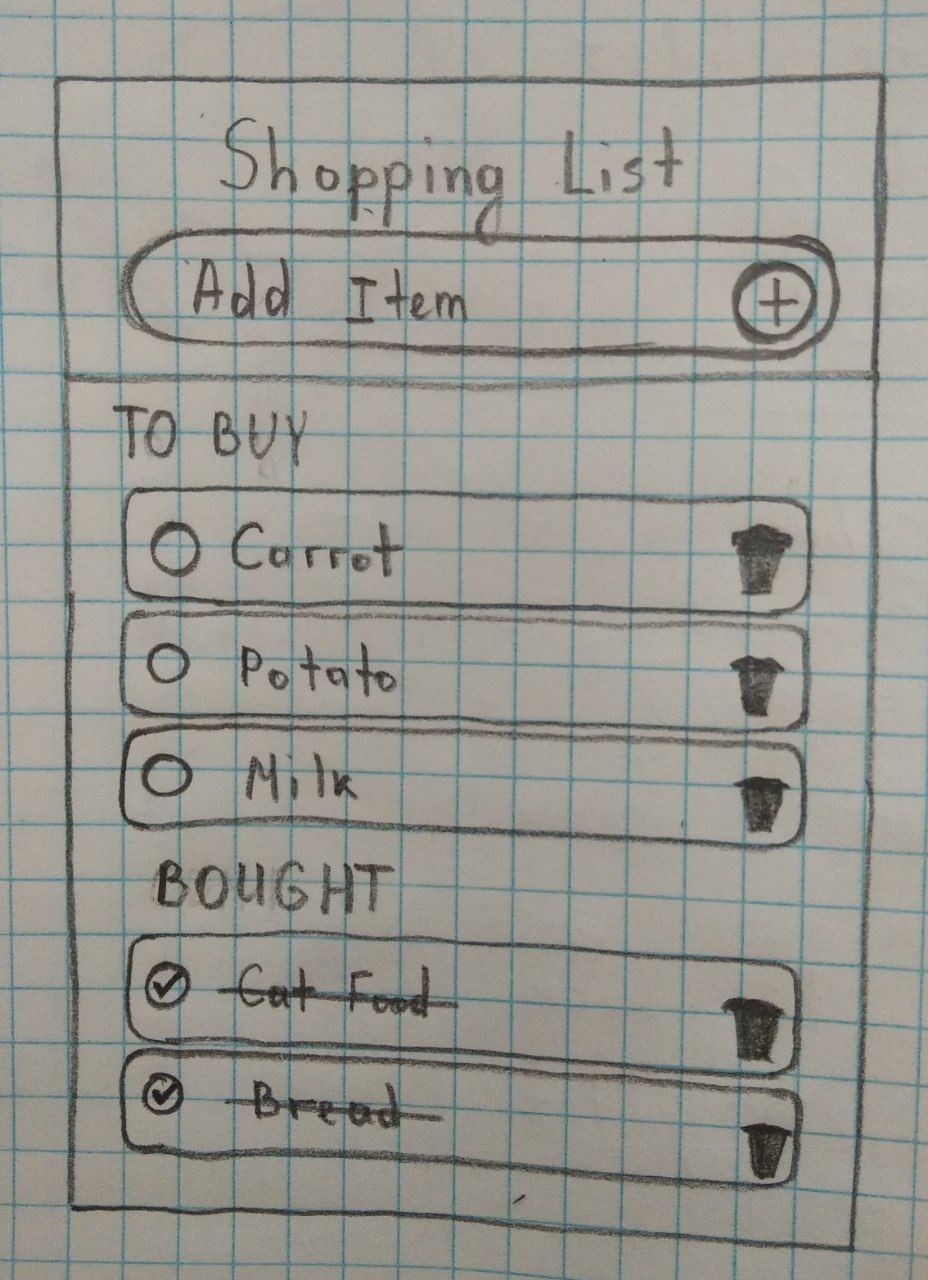 Shopping List
Add Item
TO BUY
Carrot
Potato
Milk
BOUGHT
Cat Food
Bread